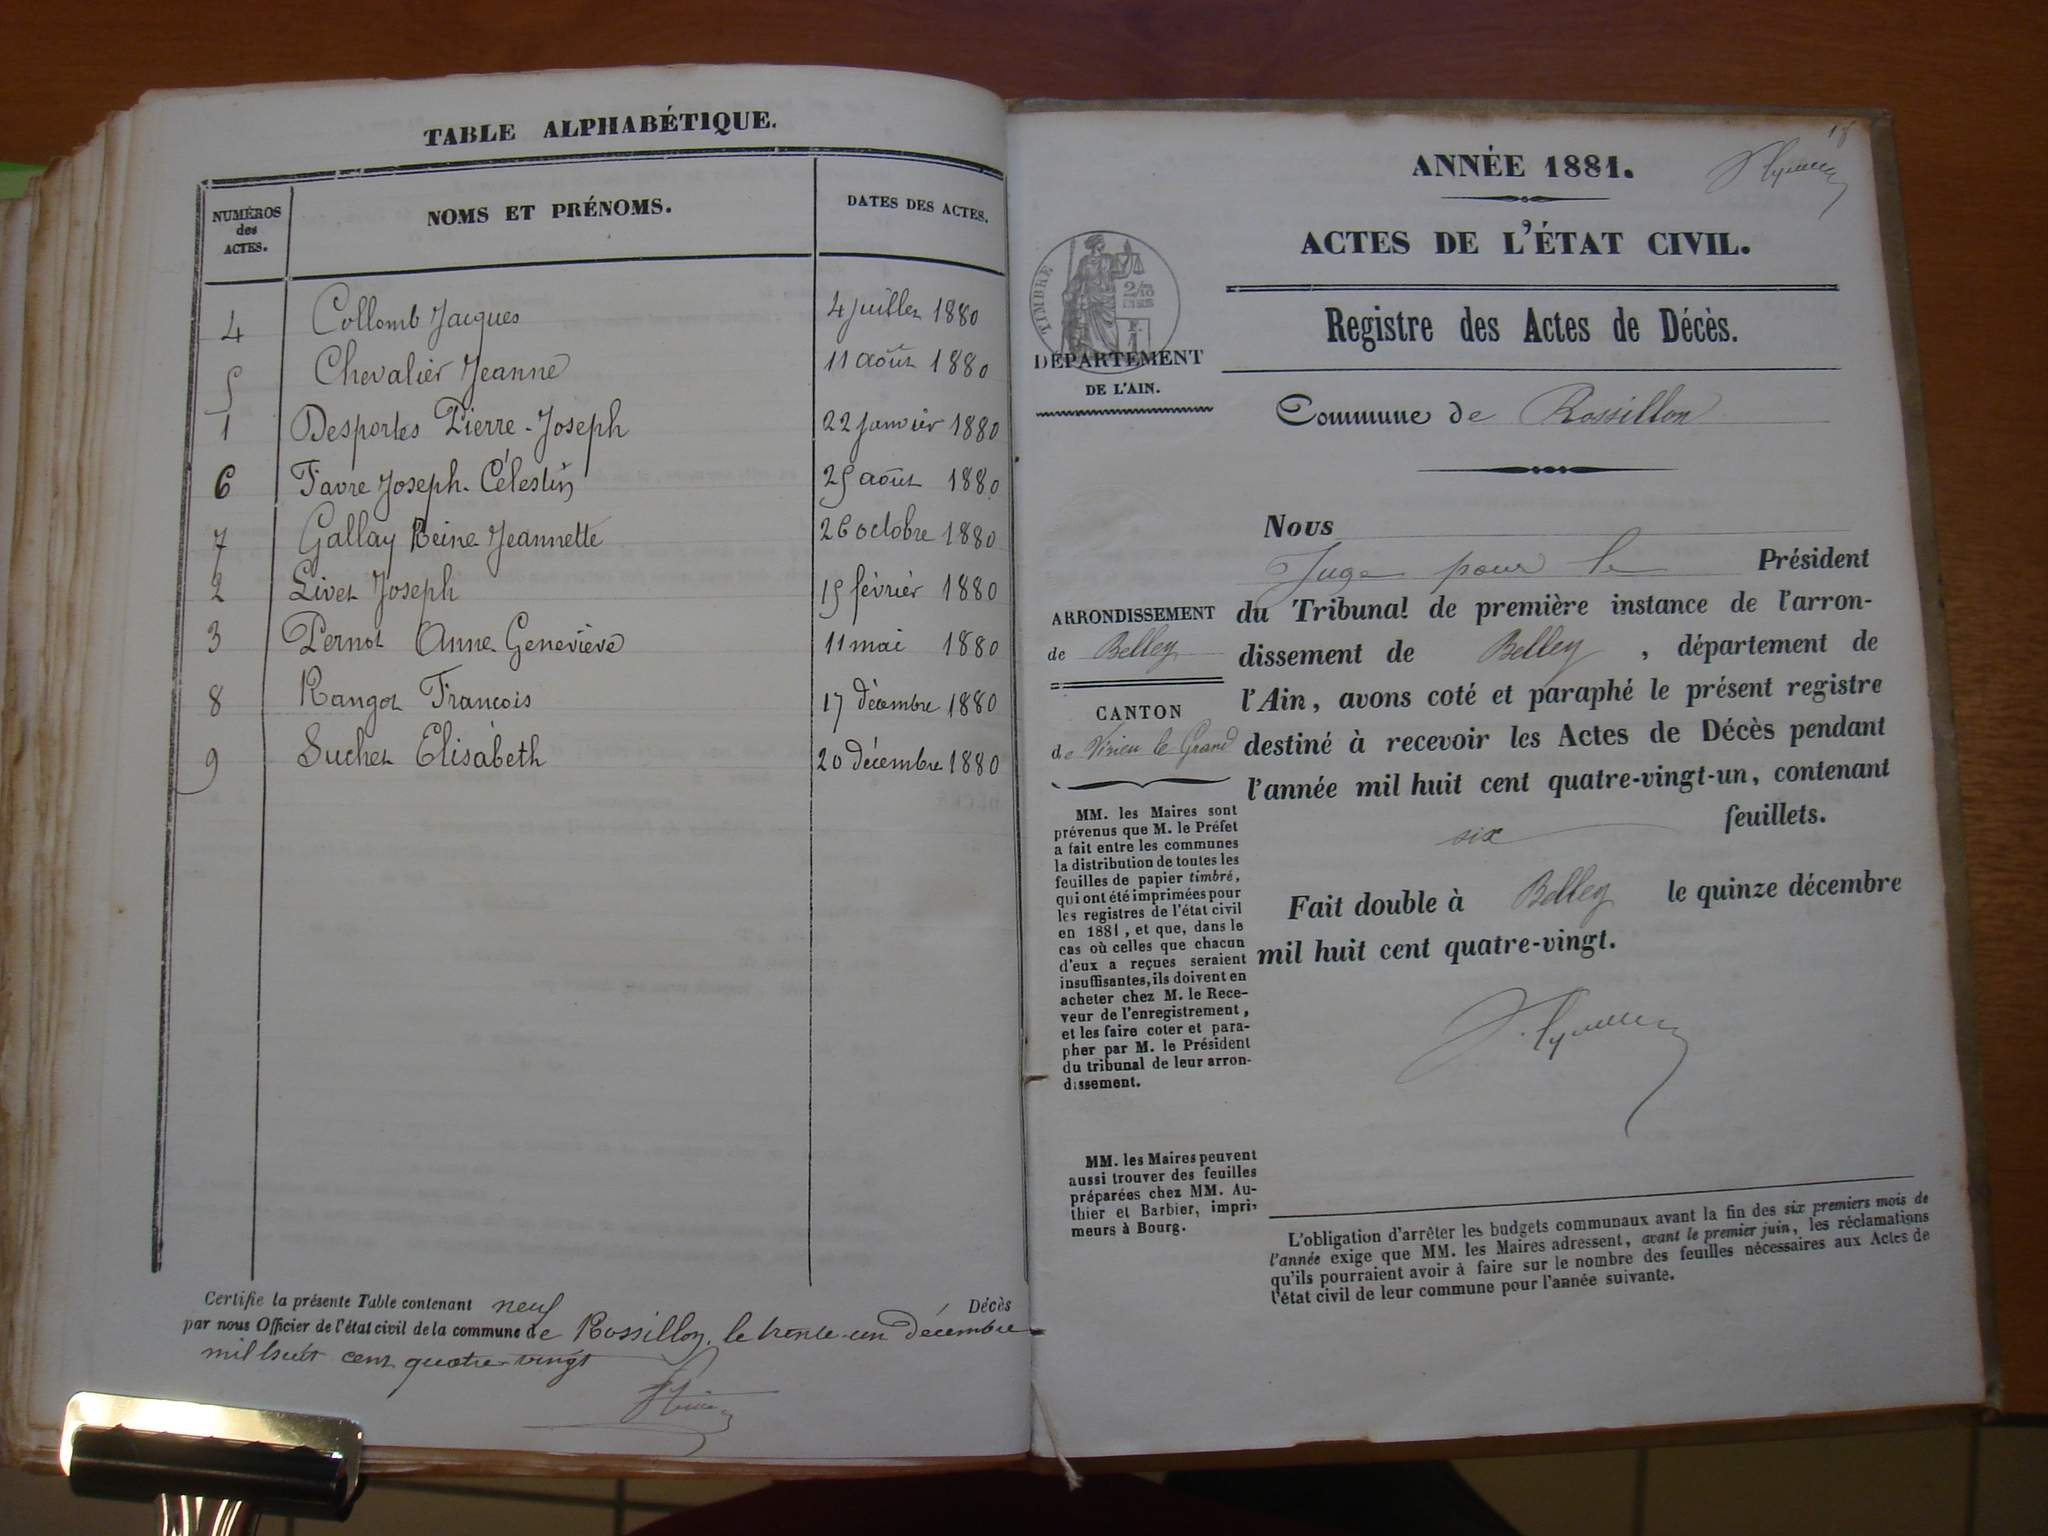 TABLE ALPHABÉTIQUE.
NUMÉROS des ACTES.
NOMS ET PRÉNOMS.
DATES DES ACTES.
4 Collomb Jacques 4 juillet 1880
5 Chevalier Jeanne 11 août 1880
1 Desportes Pierre-Joseph 22 janvier 1880
6 Favre Joseph-Célestin 25 août 1880
7 Gallay Reine Jeannette 26 octobre 1880
2 Livet Joseph 15 février 1880
3 Pernot Anne Geneviève 11 mai 1880
8 Rangot Francois 17 décembre 1880
9 Suchet Elisabeth 20 décembre 1880
Certifie la présente Table contenant neuf Décès
par nous Officier de l'état civil de la commune de Rossillon, le trente-un décembre
mil huit cent quatre-vingt
18
ANNÉE 1881.
ACTES DE L'ÉTAT CIVIL.
Registre des Actes de Décès.
TIMBRE
2/10
DÉPARTEMENT
DE L'AIN.
Commune de Rossillon
Nous
Juge pour le Président
du Tribunal de première instance de l'arron-
dissement de Belley, département de
l'Ain, avons coté et paraphé le présent registre
destiné à recevoir les Actes de Décès pendant
l'année mil huit cent quatre-vingt-un, contenant
six feuillets.
Fait double à Belley le quinze décembre
mil huit cent quatre-vingt.
ARRONDISSEMENT
de Belley
CANTON
de Virieu le Grand
MM. les Maires sont
prévenus que M. le Préfet
a fait entre les communes
la distribution de toutes les
feuilles de papier timbré,
qui ont été imprimées pour
les registres de l'état civil
en 1881, et que, dans le
cas où celles que chacun
d'eux a reçues seraient
insuffisantes, ils doivent en
acheter chez M. le Rece-
veur de l'enregistrement,
et les faire coter et para-
pher par M. le Président
du tribunal de leur arron-
dissement.
MM. les Maires peuvent
aussi trouver des feuilles
préparées chez MM. Au-
thier et Barbier, impri-
meurs à Bourg.
L'obligation d'arrêter les budgets communaux avant la fin des six premiers mois de
l'année exige que MM. les Maires adressent, avant le premier juin, les réclamations
qu'ils pourraient avoir à faire sur le nombre des feuilles nécessaires aux Actes de
l'état civil de leur commune pour l'année suivante.